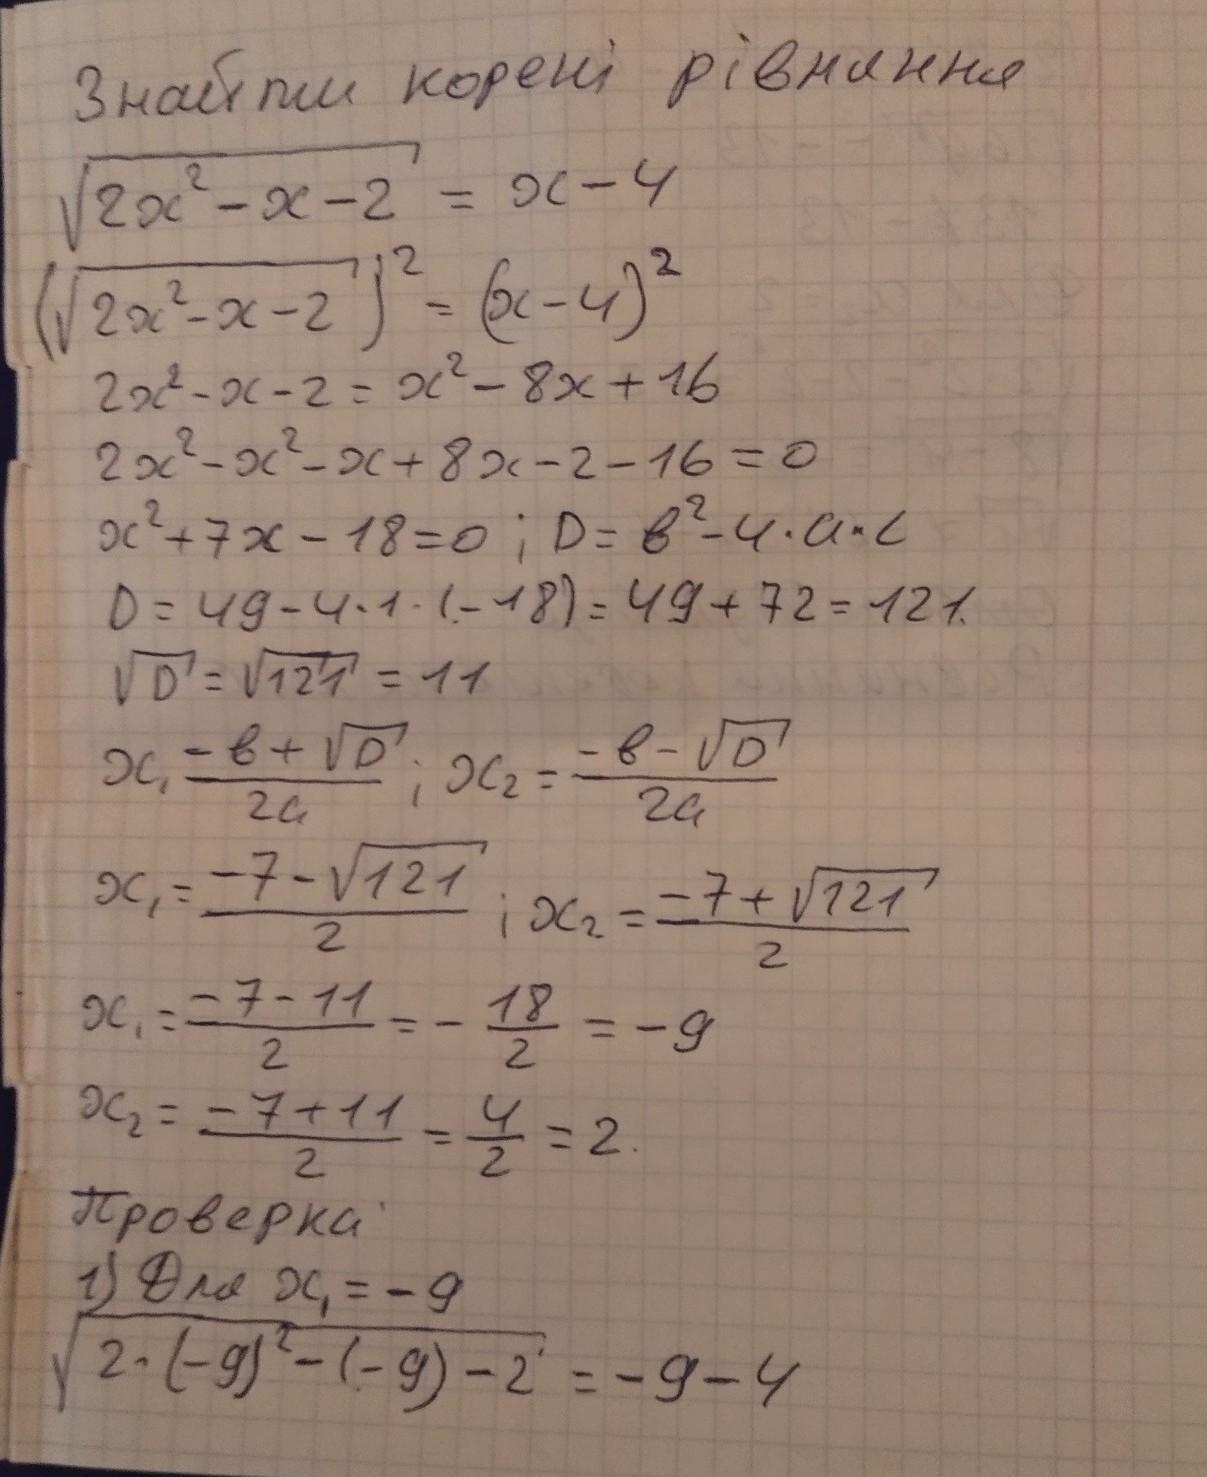 Знайти корені рівняння
√(2x² - x - 2) = x - 4
(√(2x² - x - 2))² = (x - 4)²
2x² - x - 2 = x² - 8x + 16
2x² - x² - x + 8x - 2 - 16 = 0
x² + 7x - 18 = 0 ; D = в² - 4 · a · c
D = 49 - 4 · 1 · (-18) = 49 + 72 = 121.
√D = √121 = 11
x₁ (-в + √D)/2a ; x₂ = (-в - √D)/2a
x₁ = (-7 - √121)/2 ; x₂ = (-7 + √121)/2
x₁ = (-7 - 11)/2 = - 18/2 = -9
x₂ = (-7 + 11)/2 = 4/2 = 2.
Проверка
1) Для x₁ = -9
√(2 · (-9)² - (-9) - 2) = -9 - 4